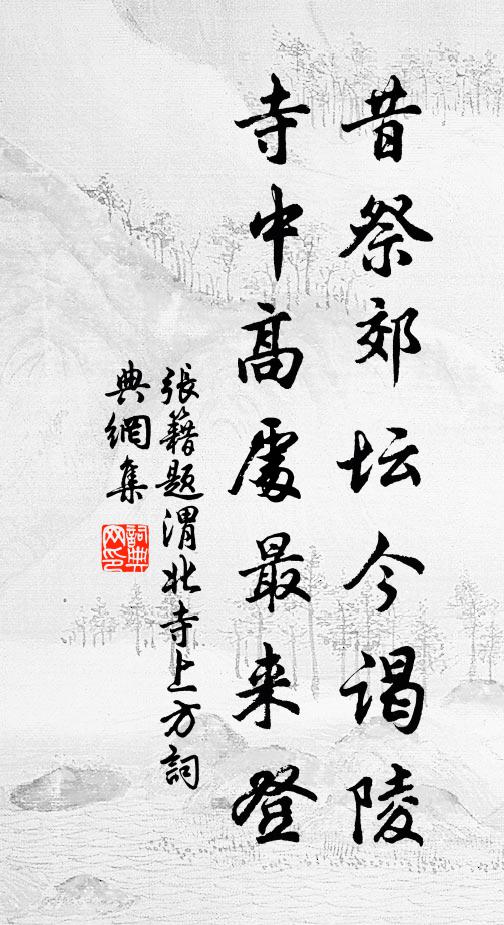 昔祭郊坛今谒陵
寺中高處最来登
張籍題渭北寺上方詞
典網集
詞典网印